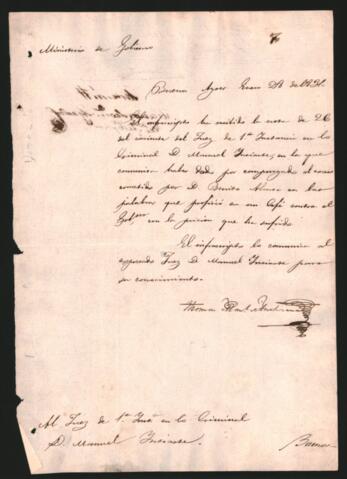 Ministerio de Gobierno
Buenos Ayres Enero 28 de
El infrascripto ha recibido la nota de 26
del corriente del Juez de 1ª Instancia en lo
Criminal D. Manuel Insiarte, en la que
comunica haber dado por compurgado el
cometido por D. Benito en las
palabras que profirió en un Café contra el
Gobno con la prision que ha sufrido.
El infrascripto lo comunica al
expresado Juez D. Manuel Insiarte para
su conocimiento.
Al Juez de 1ª Insª en lo Criminal
D. Manuel Insiarte.